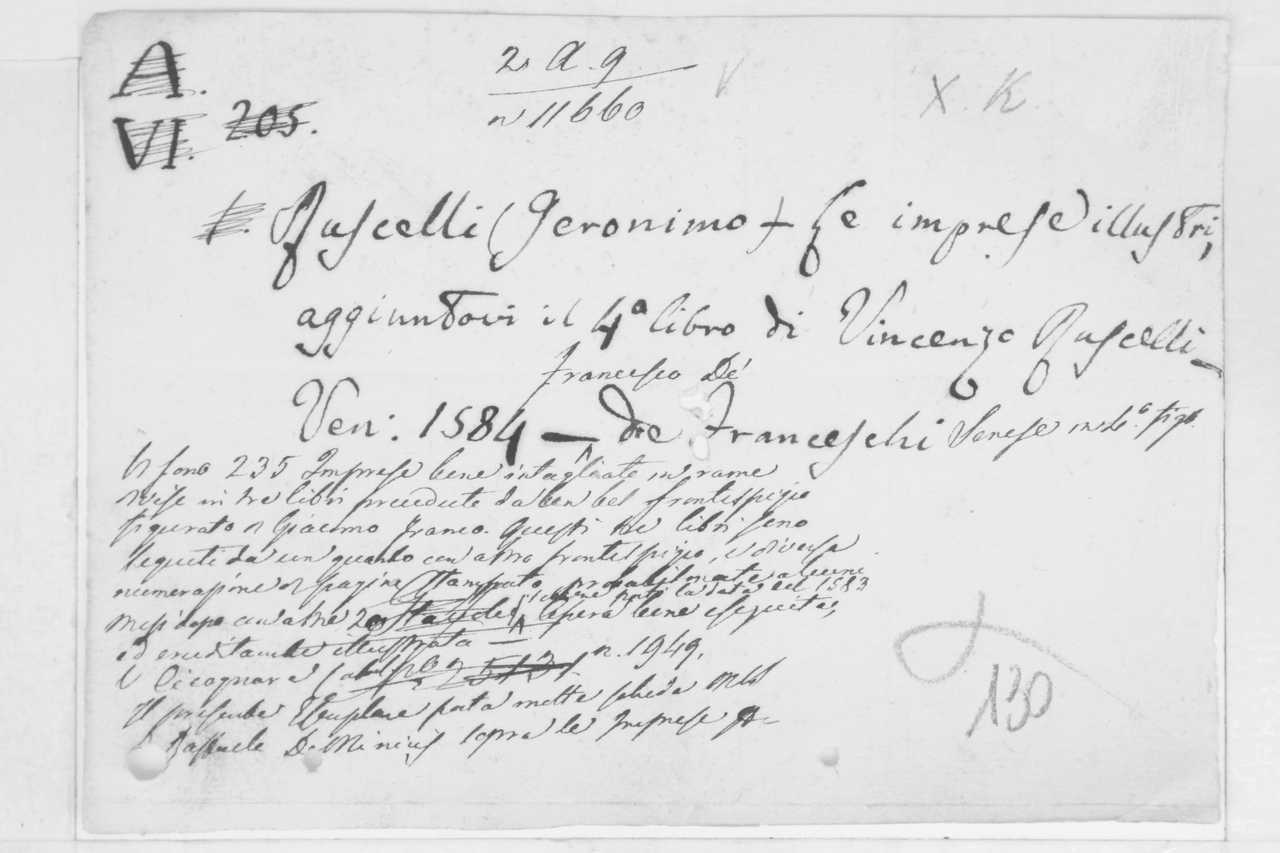 A.
VI. 205.
2. A. 9
n 11660
X. K.
Ruscelli (Geronimo) Le imprese illustri,
aggiuntovi il 4° libro di Vincenzo Ruscelli
Francesco De'
Ven: 1584 — de Franceschi Senese in 4.° fig.
Vi sono 235 Imprese bene intagliate in rame
divise in tre libri precedute da un bel frontispizio
figurato di Giacomo Franco. Questi tre libri sono
seguiti da un quarto con altro frontispizio, e diversa
numerazione di pagina stampato probabilmente alcuni
la data del 1583
mesi dopo con altre 20 opera bene eseguita,
ed eruditamente illustrata —
Cicognara n. 1949.
Il presente Esemplare porta molte schede
Raffaele De Minicis sopra le Imprese
130